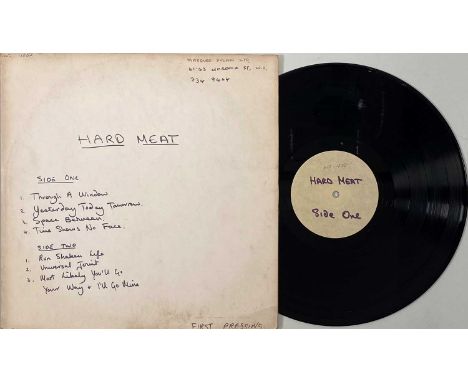 MARQUEE STUDIOS LTD
WARDOUR ST, W.1.
734
HARD MEAT
SIDE ONE
1. Through A Window
2. Yesterday Today Tomorrow.
3. Space Between.
4. Time Shows No Face.
SIDE TWO
1. Run Shaken Life
2. Universal Joint
3. Most Likely You'll Go
Your Way & I'll Go Mine
FIRST PRESSING
HARD MEAT
Side One